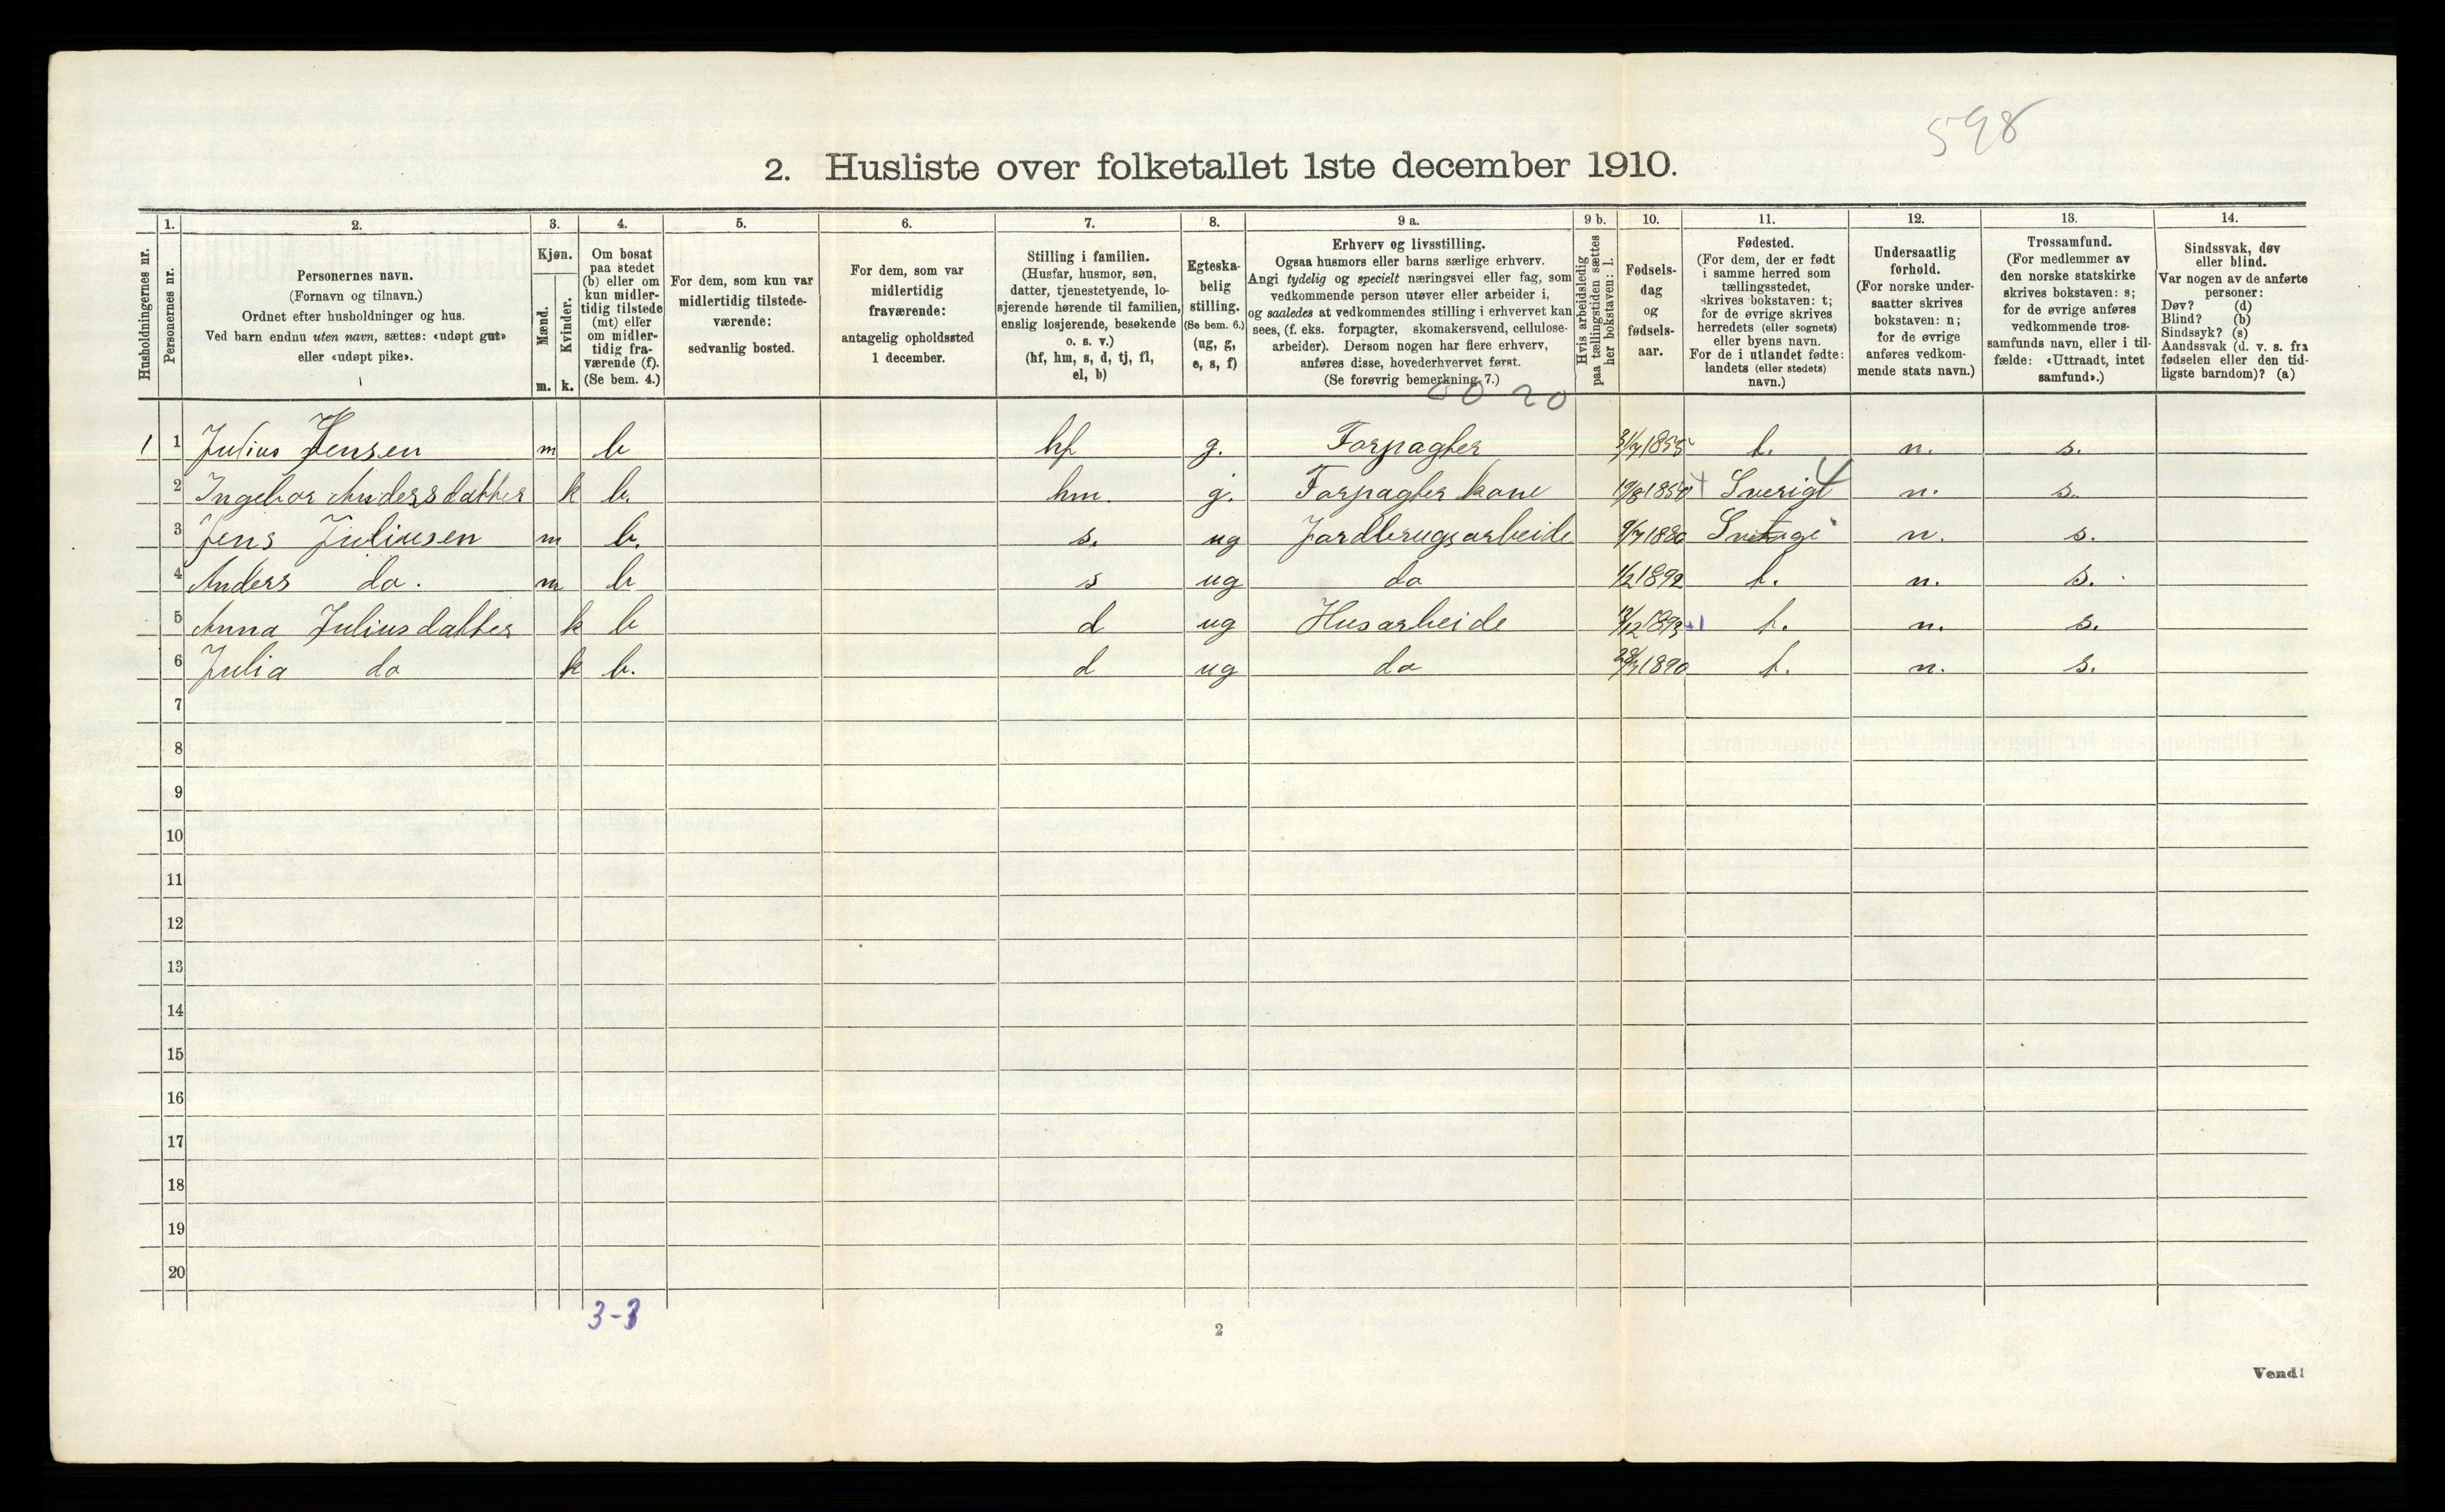 598
2. Husliste over folketallet 1ste december 1910.
Husholdningernes nr.
1.
Personernes nr.
2.
Personernes navn.
(Fornavn og tilnavn.)
Ordnet efter husholdninger og hus.
Ved barn endnu uten navn, sættes: «udøpt gut»
eller «udøpt pike».
3.
Kjøn.
Mænd.
Kvinder.
m. k.
4.
Om bosat
paa stedet
(b) eller om
kun midler-
tidig tilstede
(mt) eller
om midler-
tidig fra-
værende (f).
(Se bem. 4.)
5.
For dem, som kun var
midlertidig tilstede-
værende:
sedvanlig bosted.
6.
For dem, som var
midlertidig
fraværende:
antagelig opholdssted
1 december.
7.
Stilling i familien.
(Husfar, husmor, søn,
datter, tjenestetyende, lo-
sjerende hørende til familien,
enslig losjerende, besøkende
o. s. v.)
(hf, hm, s, d, tj, fl,
el, b)
8.
Egteska-
belig
stilling.
(Se bem. 6.)
(ug, g,
e, s, f)
9 a.
Erhverv og livsstilling.
Ogsaa husmors eller barns særlige erhverv.
Angi tydelig og specielt næringsvei eller fag, som
vedkommende person utøver eller arbeider i,
og saaledes at vedkommendes stilling i erhvervet kan
sees, (f. eks. forpagter, skomakersvend, cellulose-
arbeider). Dersom nogen har flere erhverv,
anføres disse, hovederhvervet først.
(Se forøvrig bemerkning 7.)
9 b.
Hvis arbeidsledig
paa tællingstiden sættes
her bokstaven: l.
10.
Fødsels-
dag
og
fødsels-
aar.
11.
Fødested.
(For dem, der er født
i samme herred som
tællingsstedet,
skrives bokstaven: t;
for de øvrige skrives
herredets (eller sognets)
eller byens navn.
For de i utlandet fødte:
landets (eller stedets)
navn.)
12.
Undersaatlig
forhold.
(For norske under-
saatter skrives
bokstaven: n;
for de øvrige
anføres vedkom-
mende stats navn.)
13.
Trossamfund.
(For medlemmer av
den norske statskirke
skrives bokstaven: s;
for de øvrige anføres
vedkommende tros-
samfunds navn, eller i til-
fælde: «Uttraadt, intet
samfund».)
14.
Sindssvak, døv
eller blind.
Var nogen av de anførte
personer:
Døv? (d)
Blind? (b)
Sindssyk? (s)
Aandssvak (d. v. s. fra
fødselen eller den tid-
ligste barndom)? (a)
20
1 1 Julius Jensen m b hf g. Forpagter 1855 t. n. s.
2 Ingebor Andersdatter k b. hm. g. Forpagter kone 19/8 1850 Sverige 4 n. s.
3 Jens Juliusen m b. s. ug Jordbrugsarbeide 9/7 1880 n. s.
4 Anders do. m b s ug do 1/2 1892 t. n. s.
5 Anna Juliusdatter k b d ug Husarbeide 1893 t. n. s.
6 Julia do k b. d ug do 1890 t. n. s.
7
8
9
10
11
12
13
14
15
16
17
18
19
20
3-3
2
Vend!